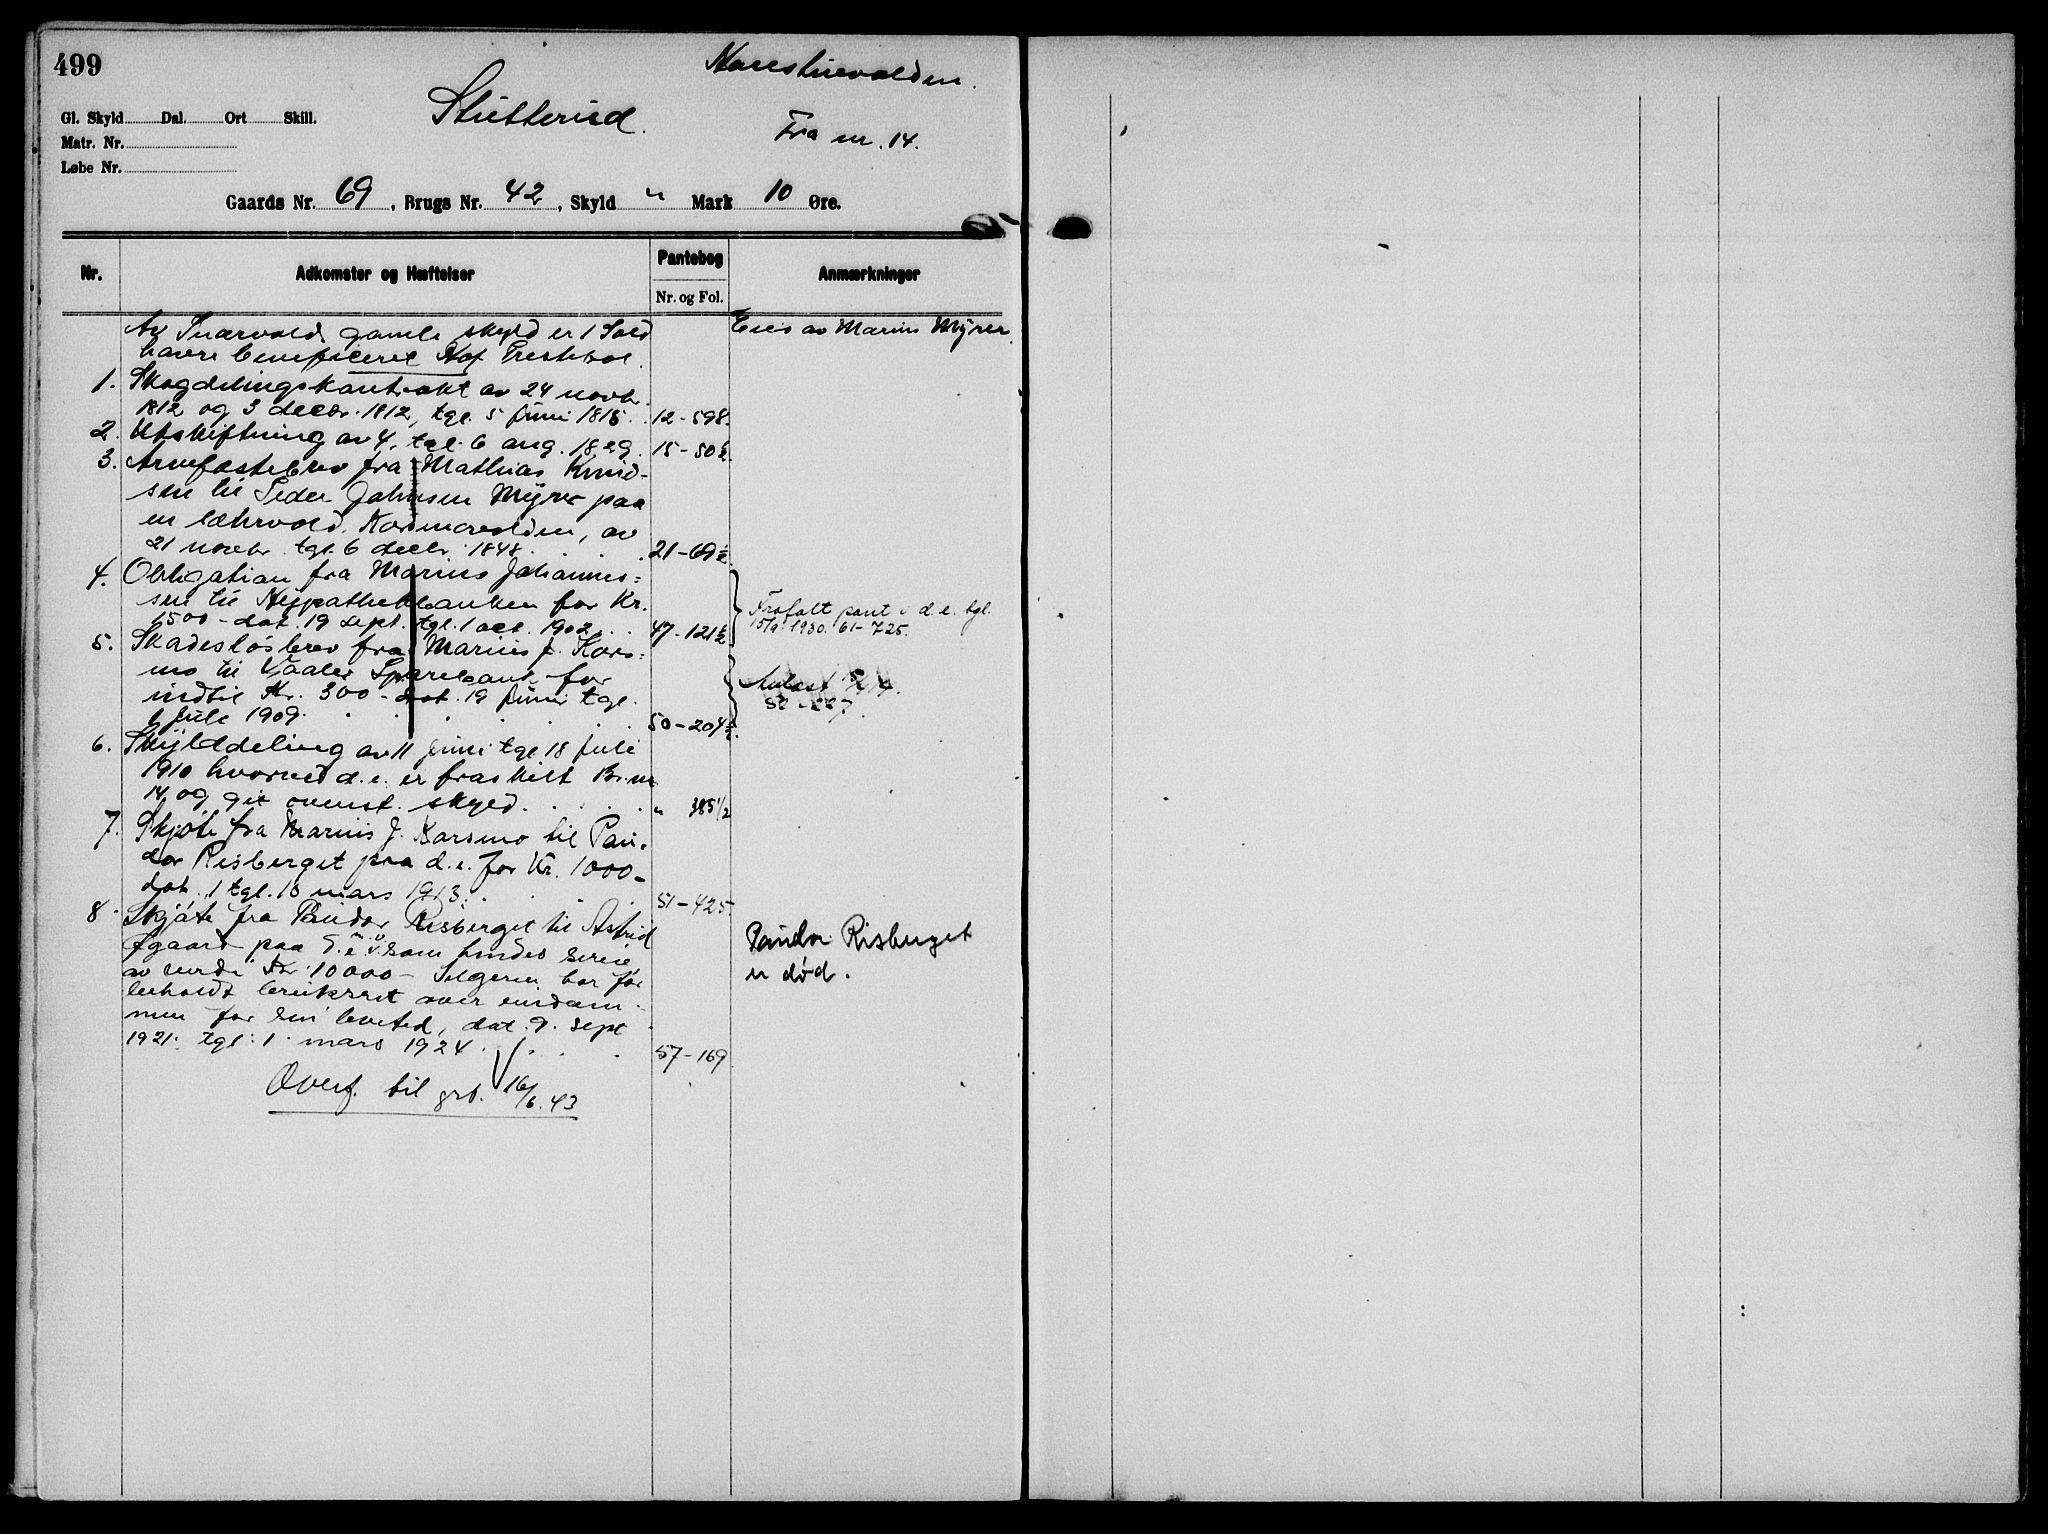 499
Stutterud.
Fra nr. 14.
Gl. Skyld Dal. Ort Skill.
Matr. Nr.
Løbe Nr.
Gaards Nr. 69, Brugs Nr. 42, Skyld " Mark 10 Øre.
Nr.
Adkomster og Hæftelser
Pantebog
Nr. og Fol.
Anmærkninger
Av gamle skyld er 1 Sold
havre beneficeret Hof Prestebol.
Eies av Marius Myrer.
1. Skogdelingskontrakt av 24 novbr.
1812 og 3 decbr. 1812, tgl. 5 juni 1815. 12-598.
2. Utskiftning av 4, tgl. 6 aug. 1829. 15-50½.
3. Arvefæstebrev fra Mathias Knud-
sen til Peder Johnsen Myrer paa
en av
21 novbr. tgl. 6 decbr. 1848. 21-69½.
4. Obligation fra Marius Johannes=
sen til Hypothekbanken for Kr.
1500- dat. 19 sept. tgl. 1 oct. 1902. 47-121½
Frafalt pant i d.e. tgl.
15/9 1930. 61-725.
5. Skadesløsbrev fra Marius J. Kors=
mo til Vaaler Sparebank for
indtil Kr. 300- dat. 19 juni tgl.
1 juli 1909. 50-204½.
Avlæst
52-227.
6. Skylddeling av 11 juni tgl. 18 juli
1910 hvorved d.e. er fraskilt Br.nr
14 og git ovenst. skyld. " 385½
7. Skjøte fra Marius J. Korsmo til Pau.
dor Risberget paa d.e. for Kr. 1000-
dat. 1 tgl. 18 mars 1913. 51-425.
8. Skjøte fra Paudor Risberget til Astrid
paa d.e. som hendes
av verdi Kr. 10000- Selgeren har for
beholdt bruksret over eiendom-
men for sin levetid, dat. 9. sept
1921. tgl. 1. mars 1924. 57-169
Paudor Risberget
er død.
Overf. til grb. 16/6.43